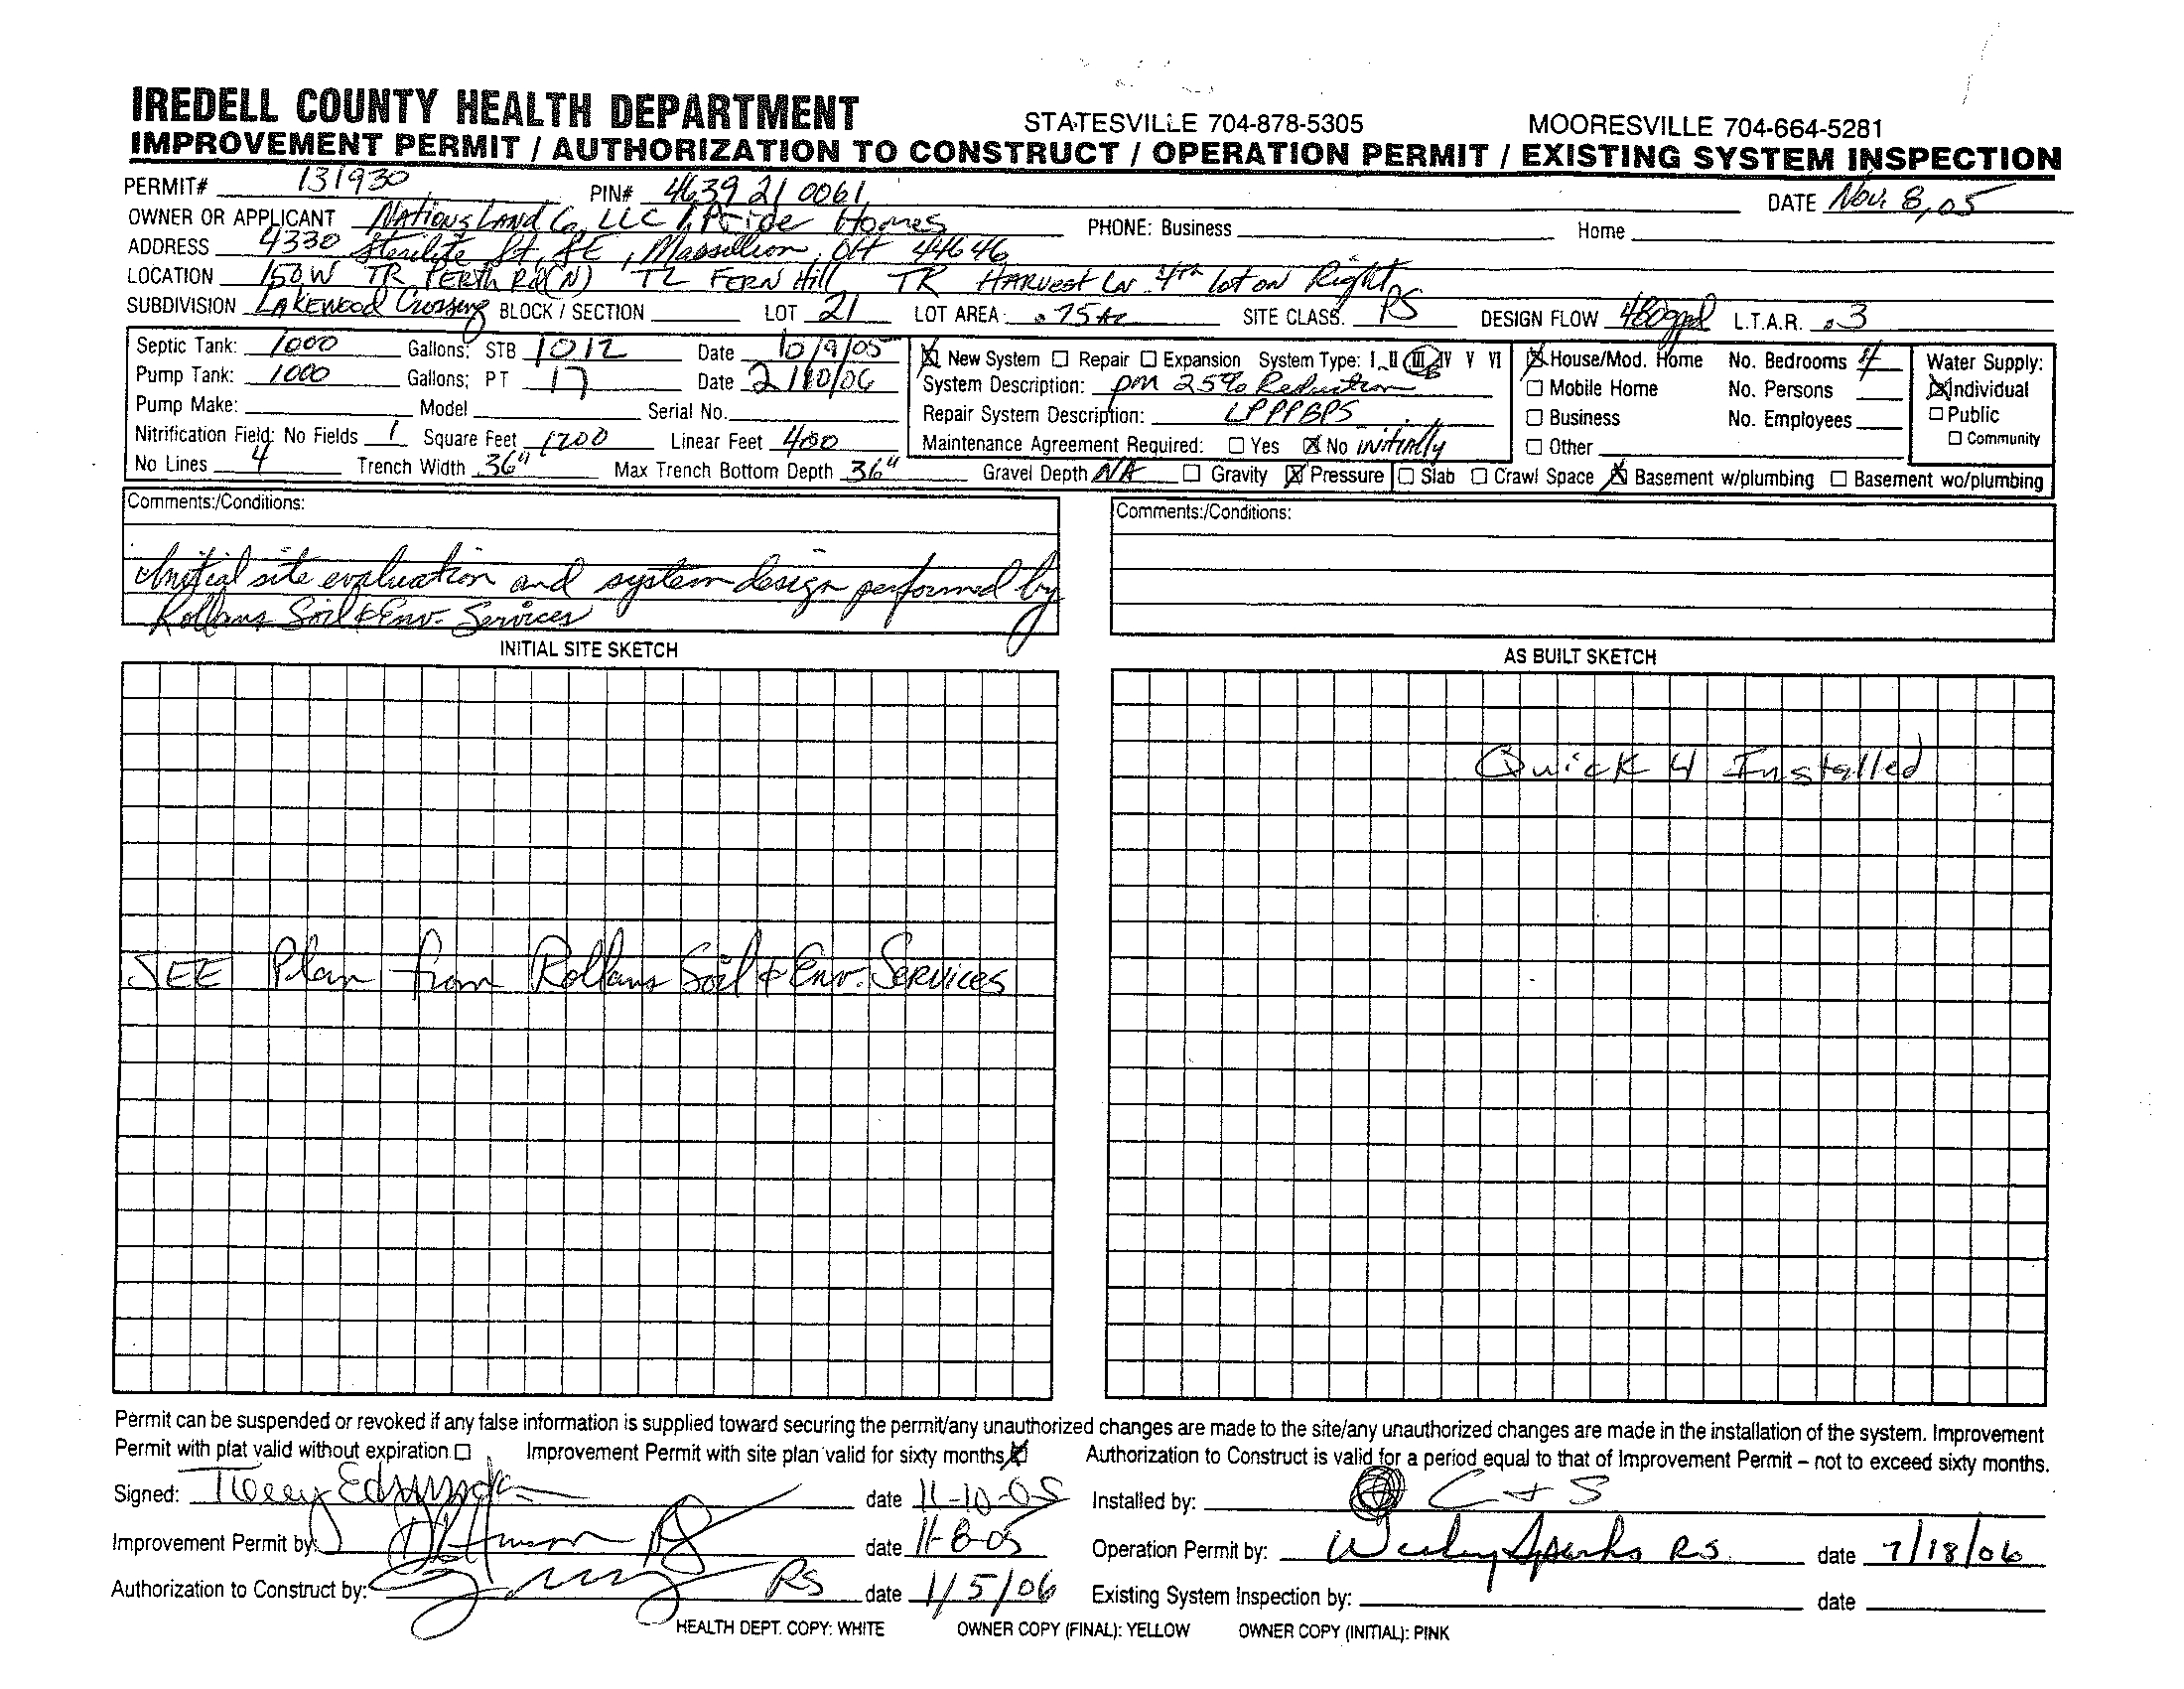 IREDELL COUNTY HEALTH DEPARTMENT STATESVILLE 704-878-5305 MOORESVILLE 704-664-5281
IMPROVEMENT PERMIT / AUTHORIZATION TO CONSTRUCT / OPERATION PERMIT / EXISTING SYSTEM INSPECTION
PERMIT# 131930 PIN# 4639 21 0061 DATE Nov. 8, 05
OWNER OR APPLICANT Nations Land Co, LLC / Pride Homes PHONE: Business Home
ADDRESS 4330 Sterilite St, SE, Massillion, OH 44646
LOCATION 150 W TR PERTH Rd (N) TL FERN Hill TR HARVEST LN 4th lot on Right
SUBDIVISION LAKEWOOD Crossing BLOCK / SECTION LOT 21 LOT AREA .75 Ac SITE CLASS. PS DESIGN FLOW 480gpd L.T.A.R. .3
Septic Tank: 1000 Gallons: STB 1012 Date 10/9/05 New System Repair Expansion System Type: I II III IV V VI House/Mod. Home No. Bedrooms 4 Water Supply:
Pump Tank: 1000 Gallons; PT 17 Date 2/10/06 System Description: pm 25% Reduction Mobile Home No. Persons Individual
Pump Make: Model Serial No. Repair System Description: LPPPBPS Business No. Employees Public
Nitrification Field: No Fields 1 Square Feet 1200 Linear Feet 400 Maintenance Agreement Required: Yes No initially Other Community
No Lines 4 Trench Width 36" Max Trench Bottom Depth 36" Gravel Depth NA Gravity Pressure Slab Crawl Space Basement w/plumbing Basement wo/plumbing
Comments:/Conditions:
Initial site evaluation and system design performed by
Rollans Soil & Env. Services
Comments:/Conditions:
INITIAL SITE SKETCH
AS BUILT SKETCH
Quick 4 Installed
SEE Plan from Rollans Soil & Env. SERVICES
Permit can be suspended or revoked if any false information is supplied toward securing the permit/any unauthorized changes are made to the site/any unauthorized changes are made in the installation of the system. Improvement
Permit with plat valid without expiration. Improvement Permit with site plan valid for sixty months Authorization to Construct is valid for a period equal to that of Improvement Permit – not to exceed sixty months.
Signed: date 11-10-05 Installed by: C + S
Improvement Permit by: date 11-8-05 Operation Permit by: Wesley Sparks RS date 7/18/06
Authorization to Construct by: RS date 1/5/06 Existing System Inspection by: date
HEALTH DEPT. COPY: WHITE OWNER COPY (FINAL): YELLOW OWNER COPY (INITIAL): PINK